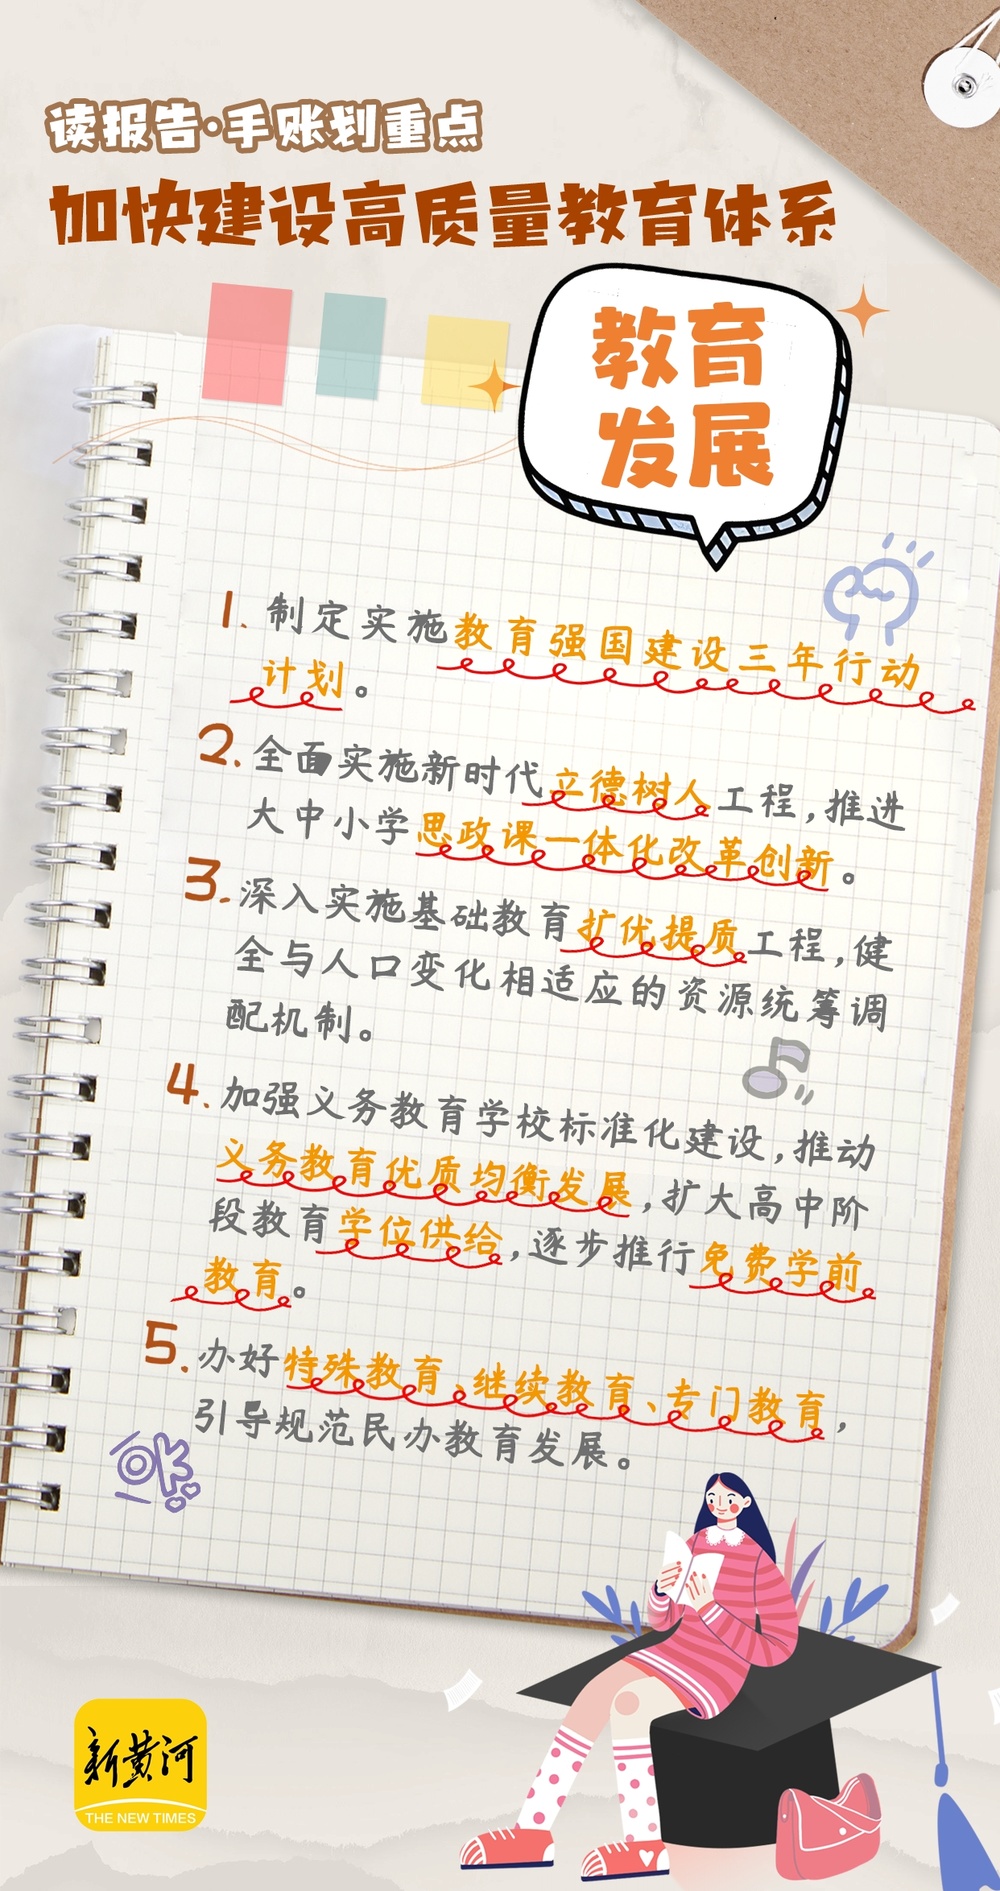 读报告·手账划重点
加快建设高质量教育体系
教育
发展
1. 制定实施教育强国建设三年行动
计划。
2. 全面实施新时代立德树人工程,推进
大中小学思政课一体化改革创新。
3. 深入实施基础教育扩优提质工程,健
全与人口变化相适应的资源统筹调
配机制。
4. 加强义务教育学校标准化建设,推动
义务教育优质均衡发展,扩大高中阶
段教育学位供给,逐步推行免费学前
教育。
5. 办好特殊教育、继续教育、专门教育,
引导规范民办教育发展。
OK
新黄河
THE NEW TIMES